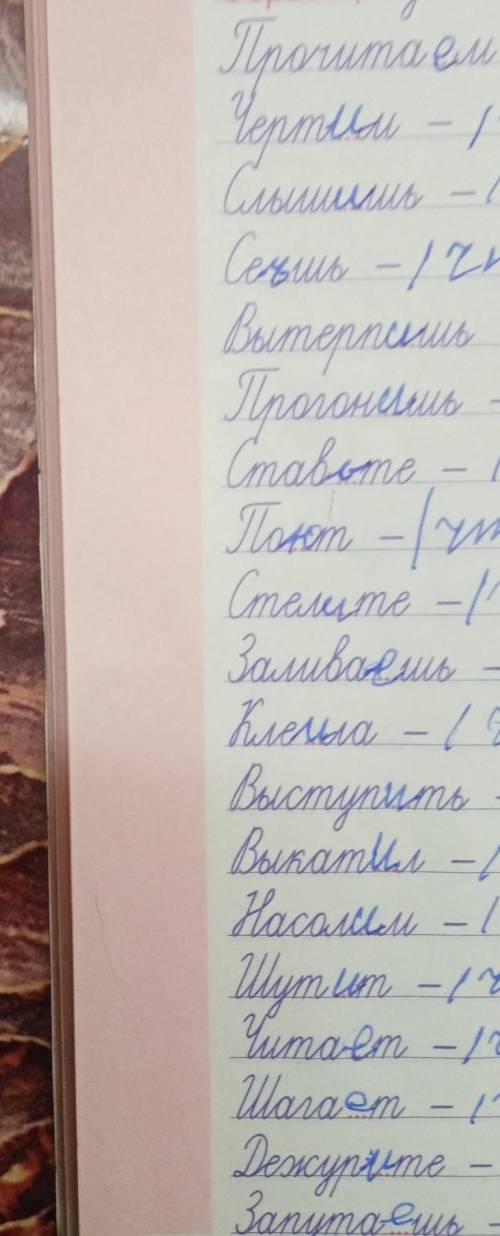 Прочитаем
Чертим –
Слышишь –
Сечшь –
Вытерпишь
Прогонишь –
Ставьте –
Поют –
Стелите –
Заливаешь –
Клеила –
Выступить –
Выкатил –
Насолим –
Шутит –
Читает –
Шагает –
Дежурите –
Запутаешь –